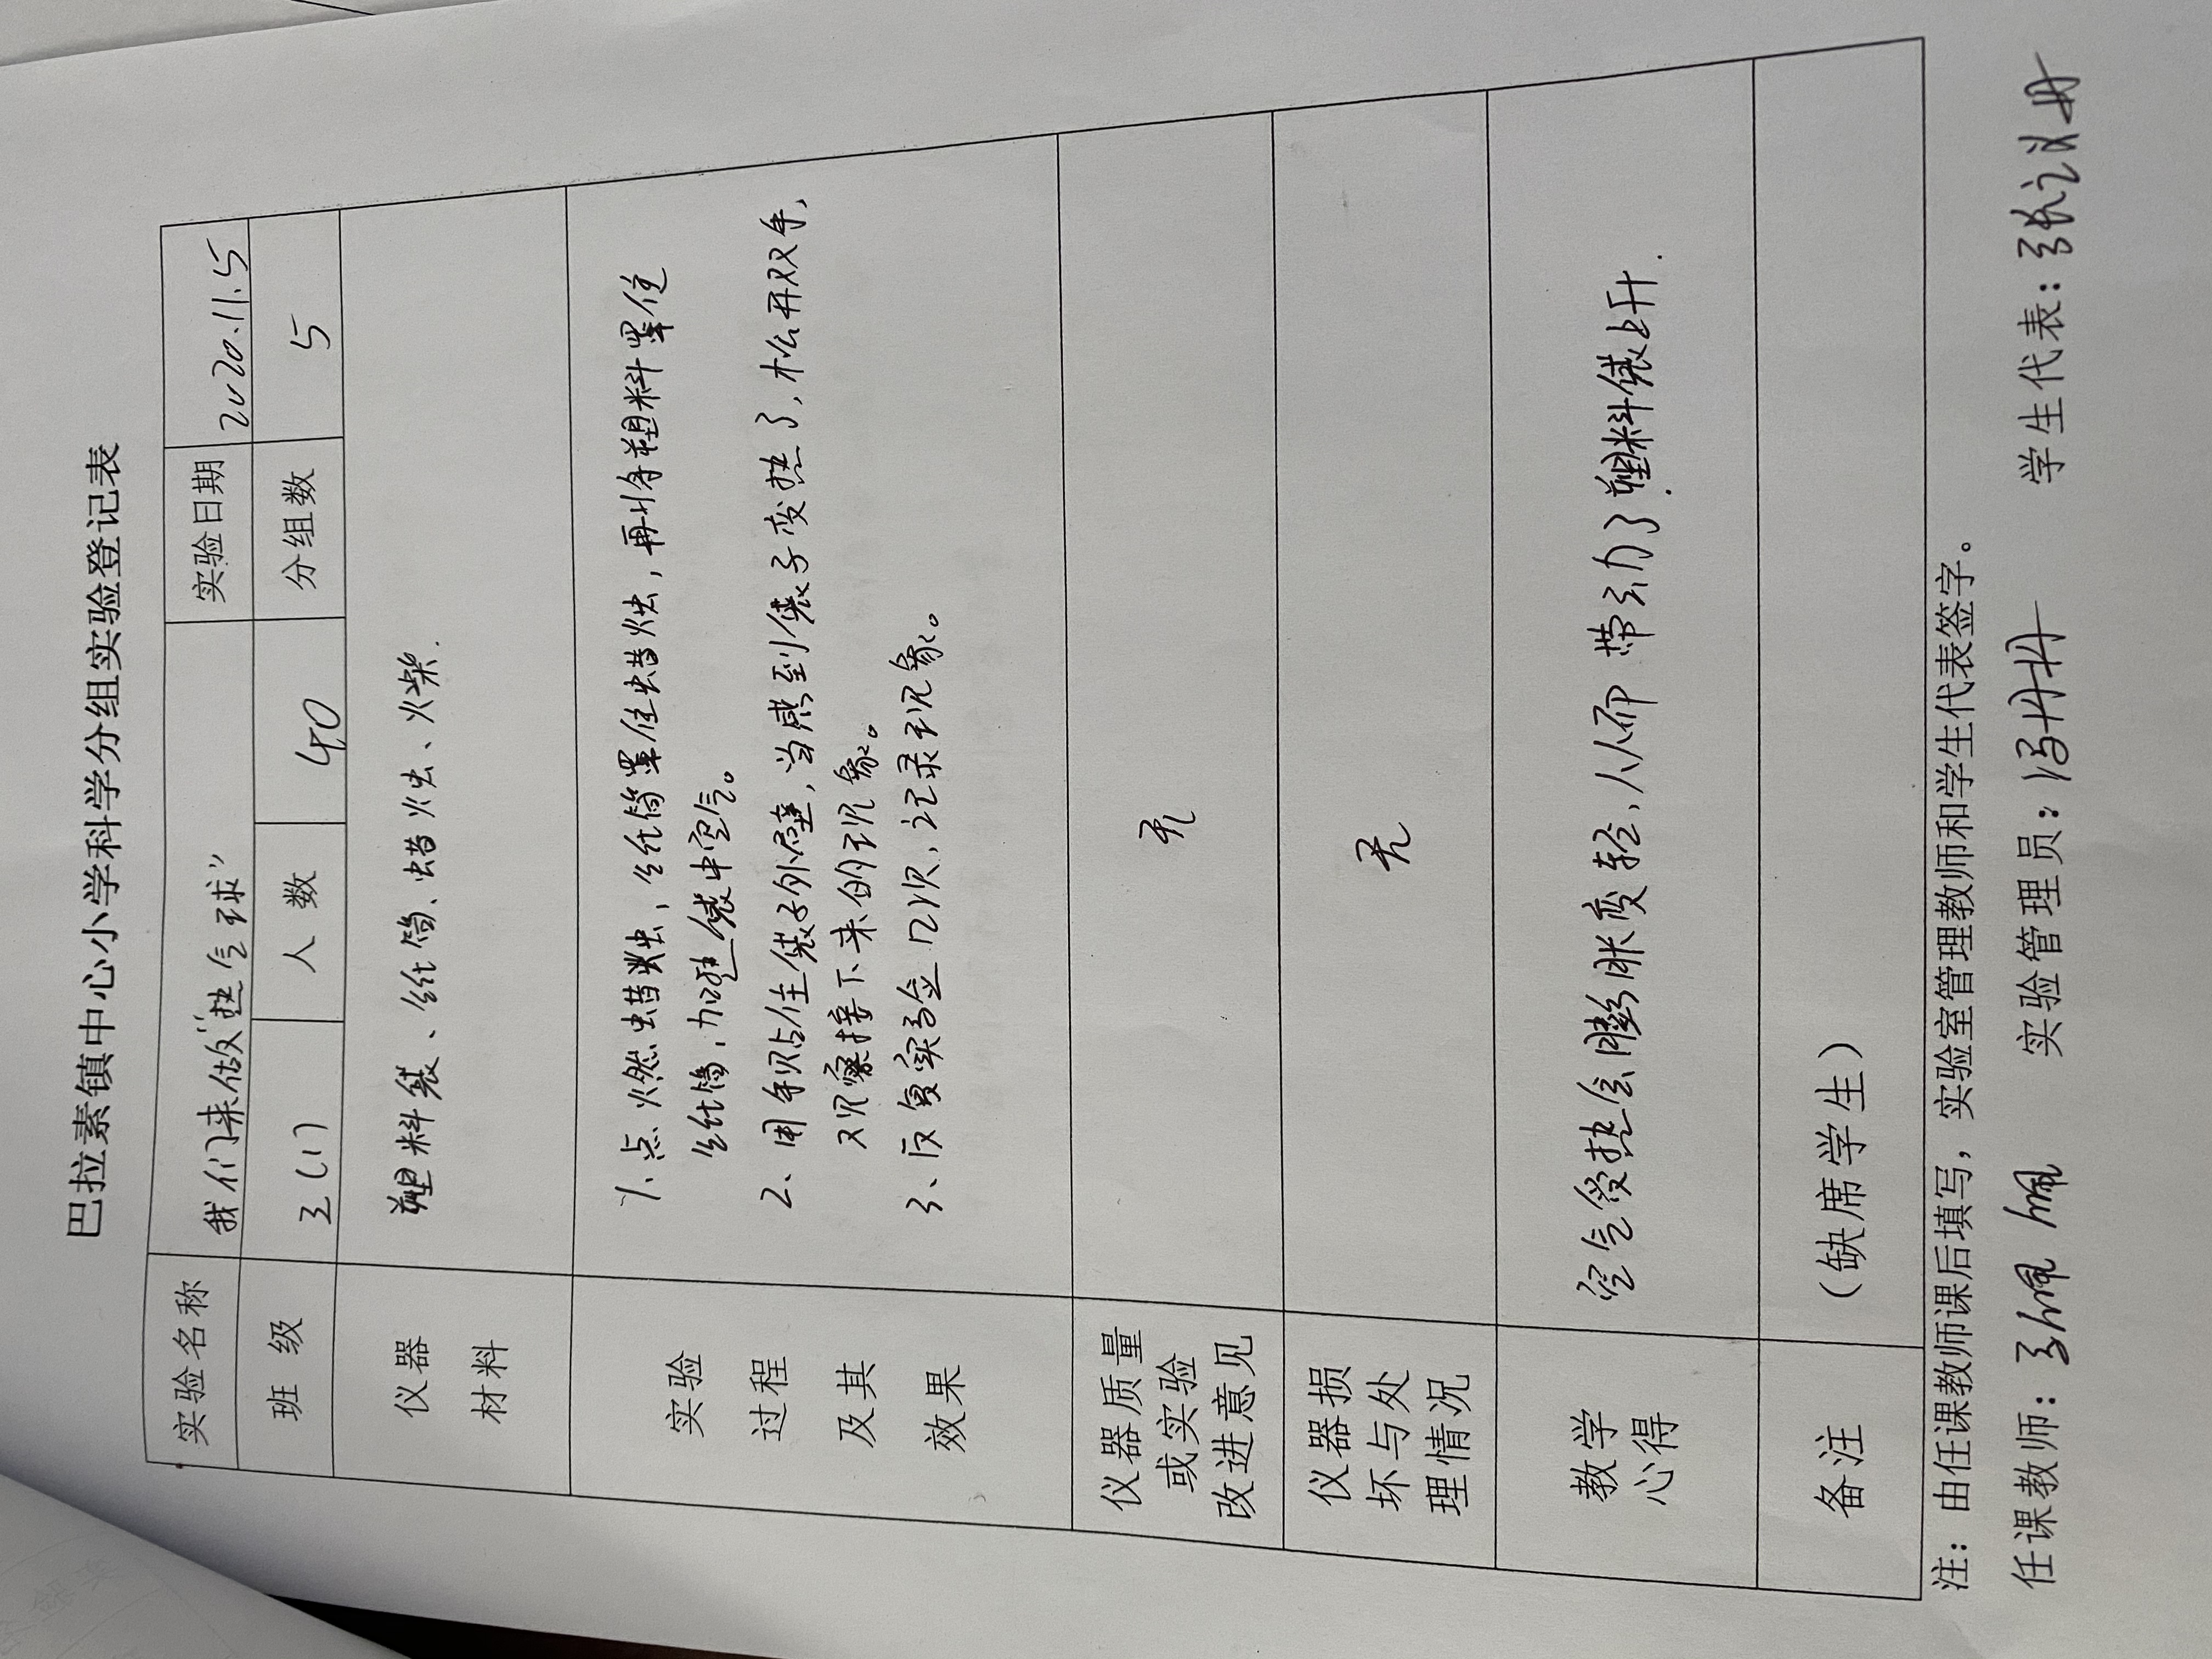 巴拉素镇中心小学科学分组实验登记表
实验名称 我们来做“热气球” 实验日期 2020.11.5
班 级 3(1) 人 数 40 分组数 5
仪器
材料
塑料袋、纸筒、蜡烛、火柴.
实验
过程
及其
效果
1、点燃蜡烛, 纸筒罩住蜡烛, 再将塑料罩住
纸筒, 加热袋中空气。
2、用手贴住袋子外壁, 当感到袋子变热了, 松开双手,
观察接下来的现象。
3、反复实验几次, 记录现象。
仪器质量
或实验
改进意见
无
仪器损
坏与处
理情况
无
教学
心得
空气受热会膨胀变轻, 从而带动了塑料袋上升.
备注
(缺席学生)
注：由任课教师课后填写，实验室管理教师和学生代表签字。
任课教师: 实验管理员: 冯丹丹 学生代表: 张